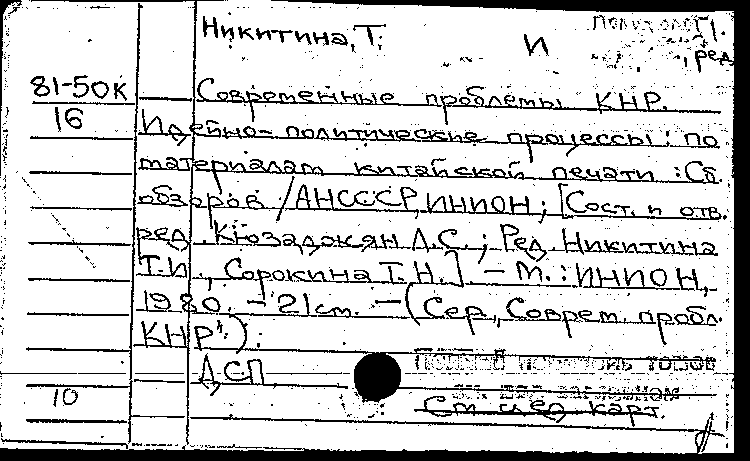 Никитина, Т.
И
, ред
81-50к
16
Современные проблемы КНР.
Идейно-политические процессы: по
материалам китайской печати: Сб.
обзоров / АН СССР, ИНИОН; [Сост. и отв.
ред. Кюзаджян Л.С.; Ред. Никитина
Т.И., Сорокина Т.Н.] - М.: ИНИОН,
1980. - 21 см. - (Сер., Соврем. пробл.
КНР").
ДСП
10
См след карт.